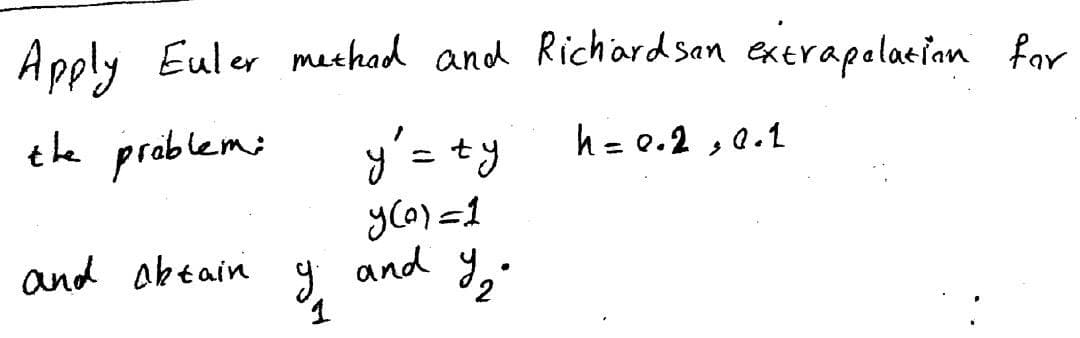 Apply Euler method and Richardson extrapolation for
the problem: y' = ty h = 0.2, 0.1
y(0) = 1
and obtain y₁ and y₂.